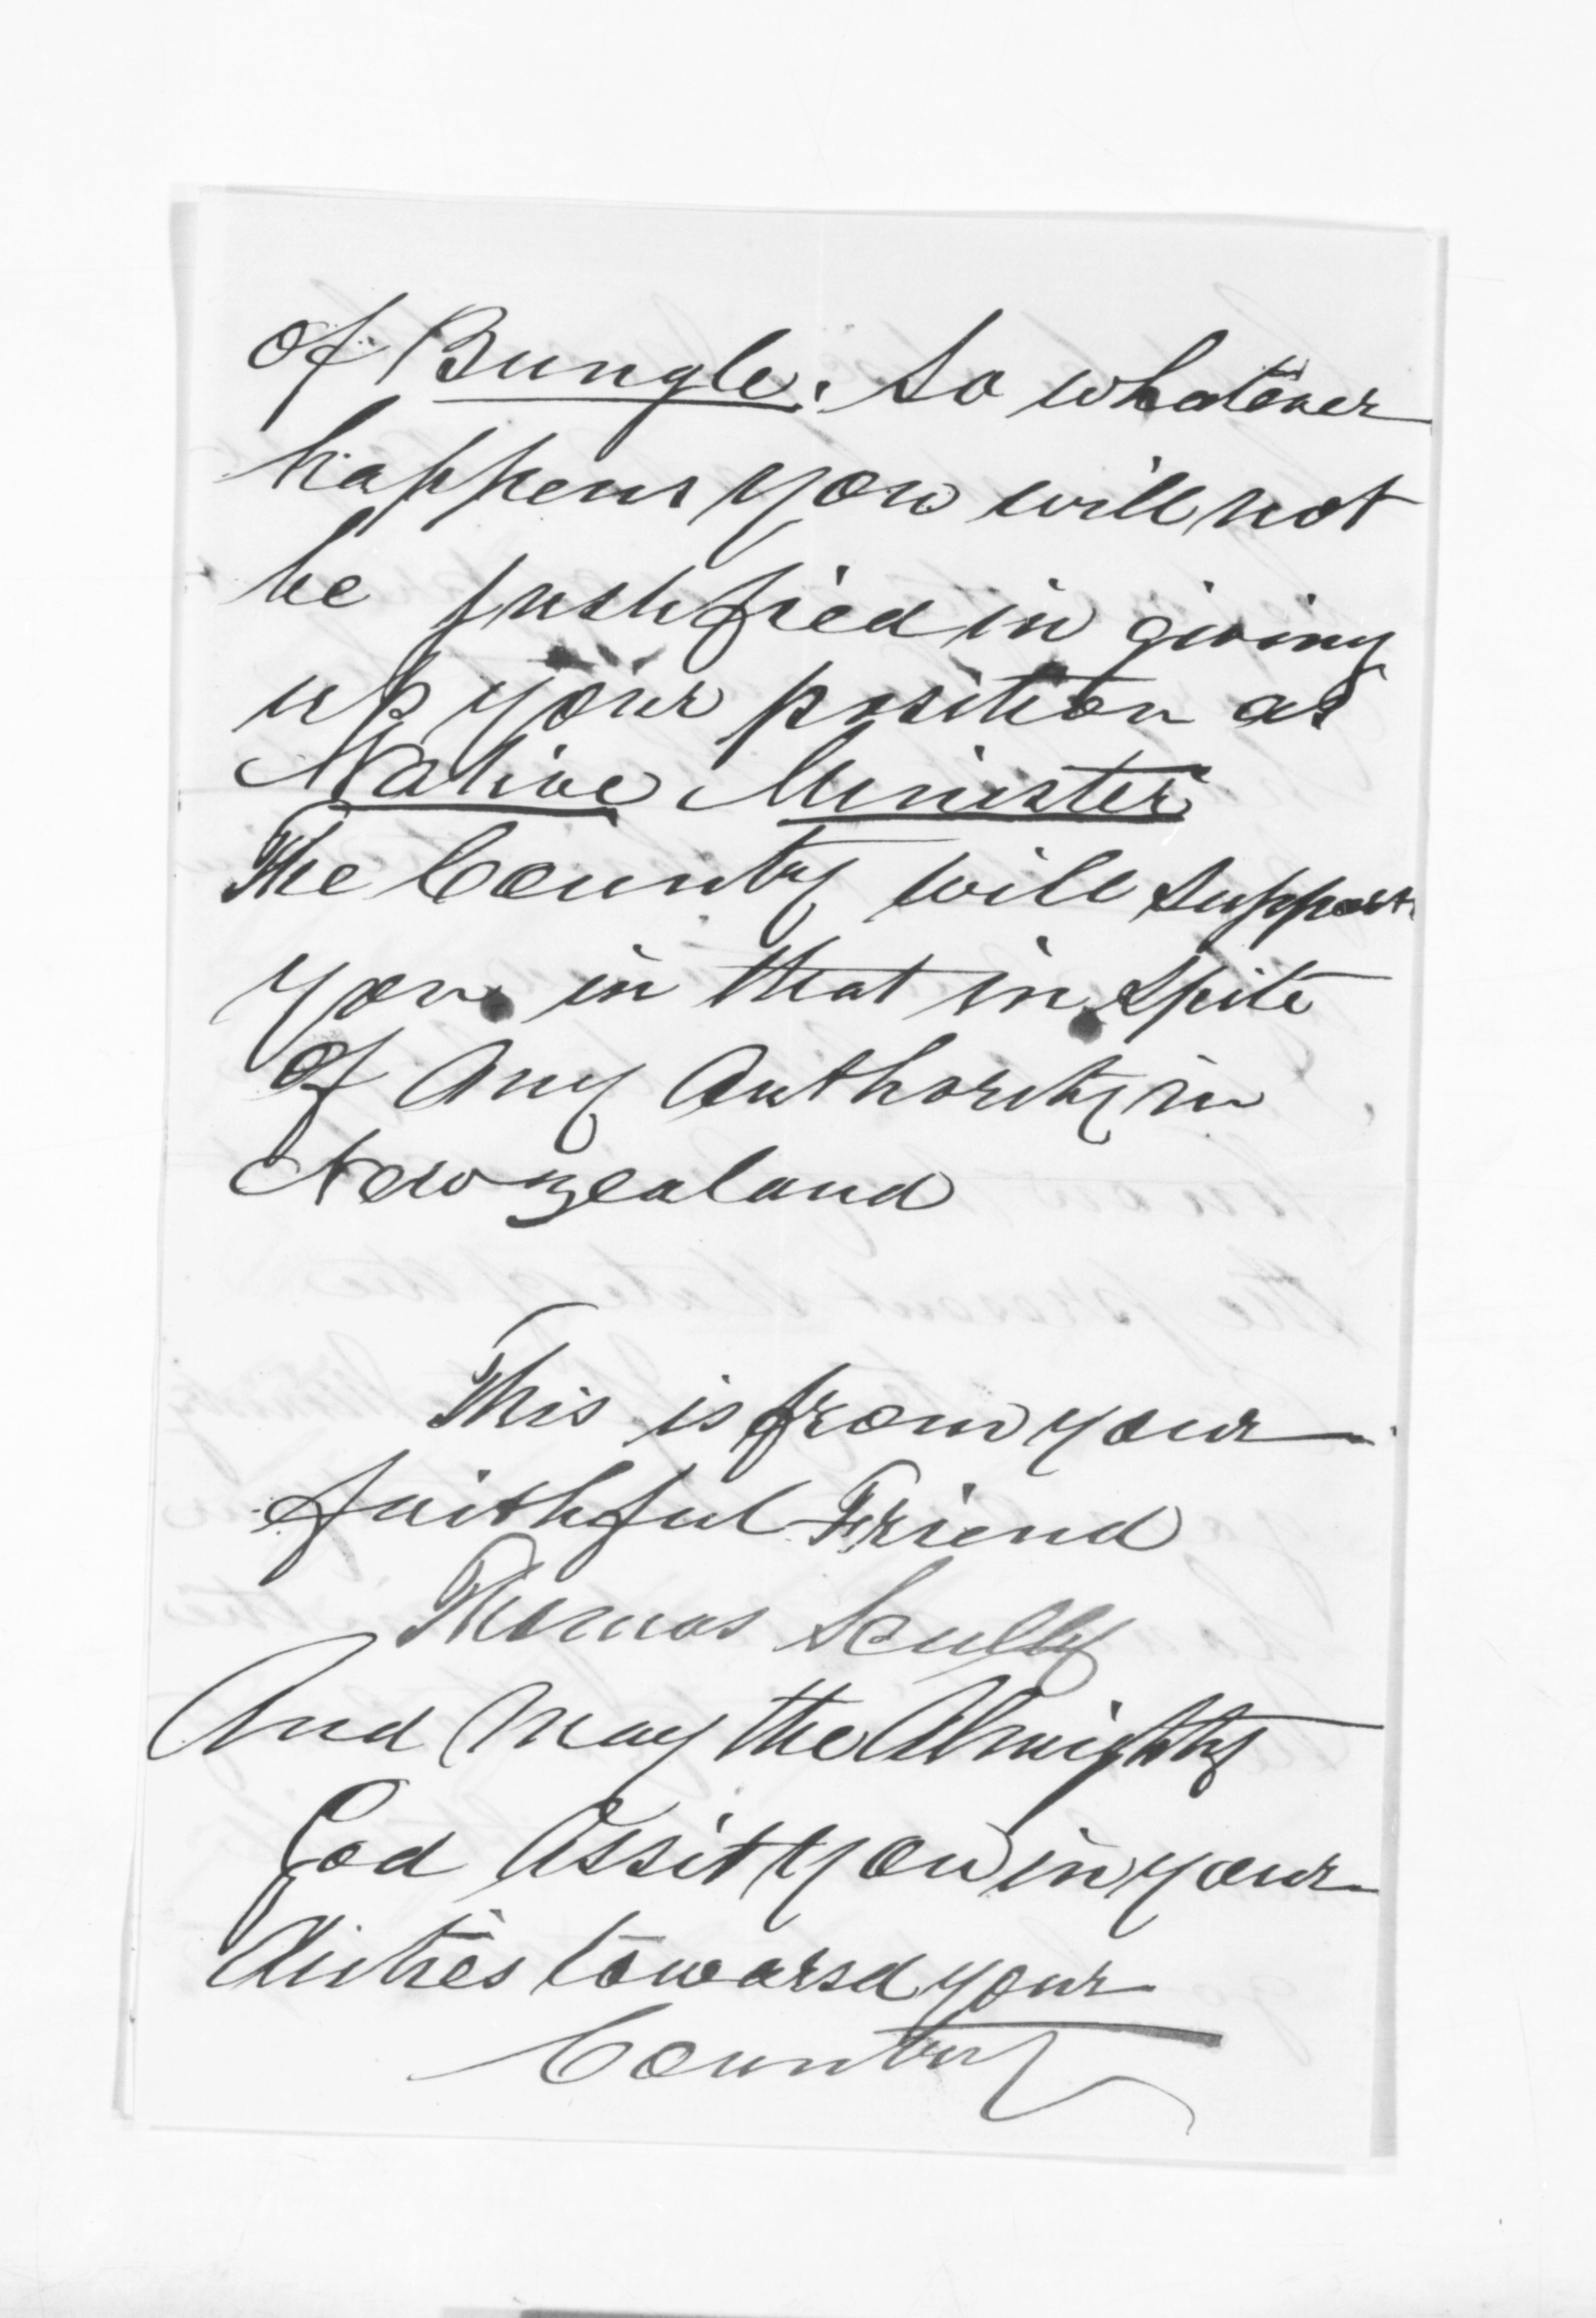 of Bungle. So whatever
happens you will not
be justified in giving
up your position as
Native Minister
The Country will support
you in that in spite
of any Authority in
New zealand
This is from your
faithful Friend
Thomas Scully
And may the Almighty
God Assit you in your
duties towarsd your
Country